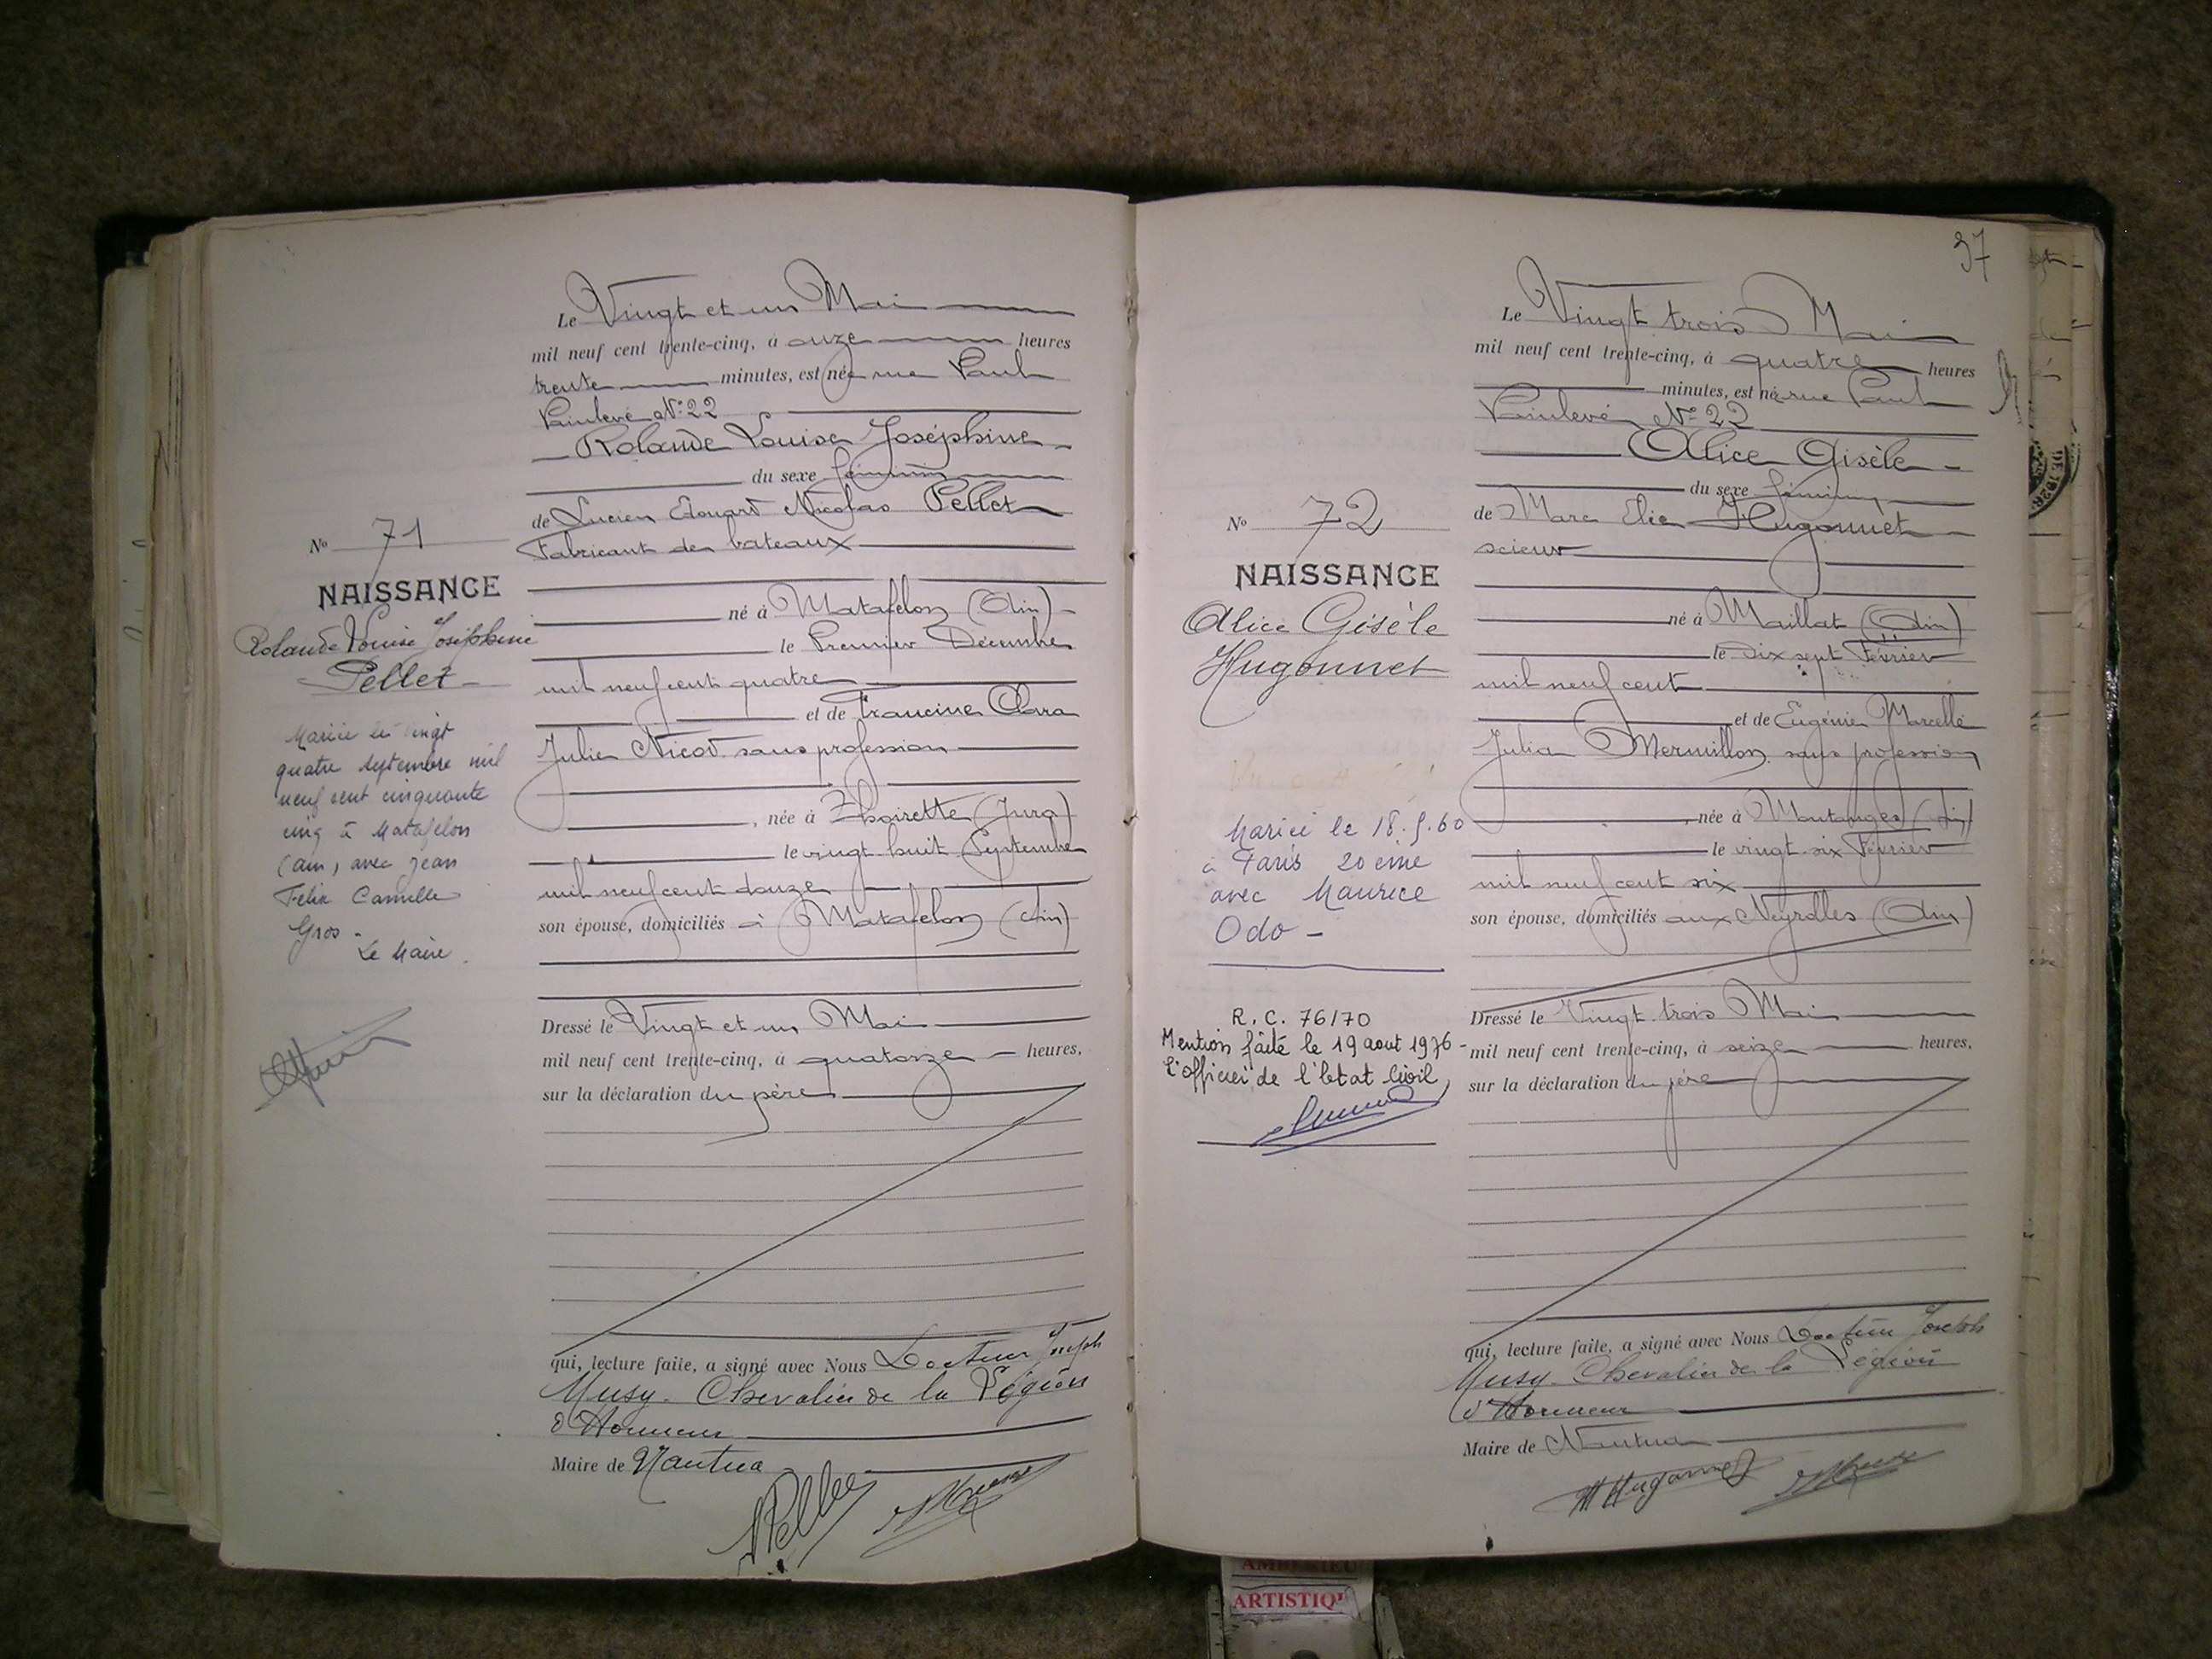 Le Vingt et un Mai
mil neuf cent trente-cinq, à onze heures
trente minutes, est née rue Paul
Painlevé N° 22
Rolande Louise Joséphine
du sexe féminin
de Lucien Edouard Nicolas Pellet
Fabricant de bateaux
né à Matafelon (Ain)
le Premier Décembre
mil neuf cent quatre
et de Francine Clara
Julie Nicod sans profession
, née à Thoirette (Jura)
le vingt huit Septembre
mil neuf cent douze
son épouse, domiciliés à Matafelon (Ain)
Dressé le Vingt et un Mai
mil neuf cent trente-cinq, à quatorze heures,
sur la déclaration du père
qui, lecture faite, a signé avec Nous Docteur Joseph
Musy. Chevalier de la Légion
d'Honneur
Maire de Nantua
N° 71
NAISSANCE
Rolande Louise Joséphine
Pellet
Mariée le vingt
quatre septembre mil
neuf cent cinquante
cinq à Matafelon
(Ain) avec Jean
Felix Camille
Gros -
Le Maire.
37
Le Vingt trois Mai
mil neuf cent trente-cinq, à quatre heures
minutes, est née rue Paul
Painlevé N° 22
Alice Gisèle
du sexe féminin
de Marc Elie Hugonnet
scieur
né à Maillat (Ain)
le Dix sept Février
mil neuf cent
et de Eugénie Marcelle
Julia Mermillon sans profession
, née à Montanges (Ain)
le vingt six Février
mil neuf cent six
son épouse, domiciliés aux Neyrolles (Ain)
Dressé le Vingt trois Mai
mil neuf cent trente-cinq, à seize heures,
sur la déclaration du père
qui, lecture faite, a signé avec Nous Docteur Joseph
Musy. Chevalier de la Légion
d'Honneur
Maire de Nantua
M Hugonnet
N° 72
NAISSANCE
Alice Gisèle
Hugonnet
Mariée le 18.9.60
à Paris 20 ème
avec Maurice
Odo -
R.C. 76/70
Mention faite le 19 aout 1976 -
l'officier de l'Etat Civil,
ARTISTIQ